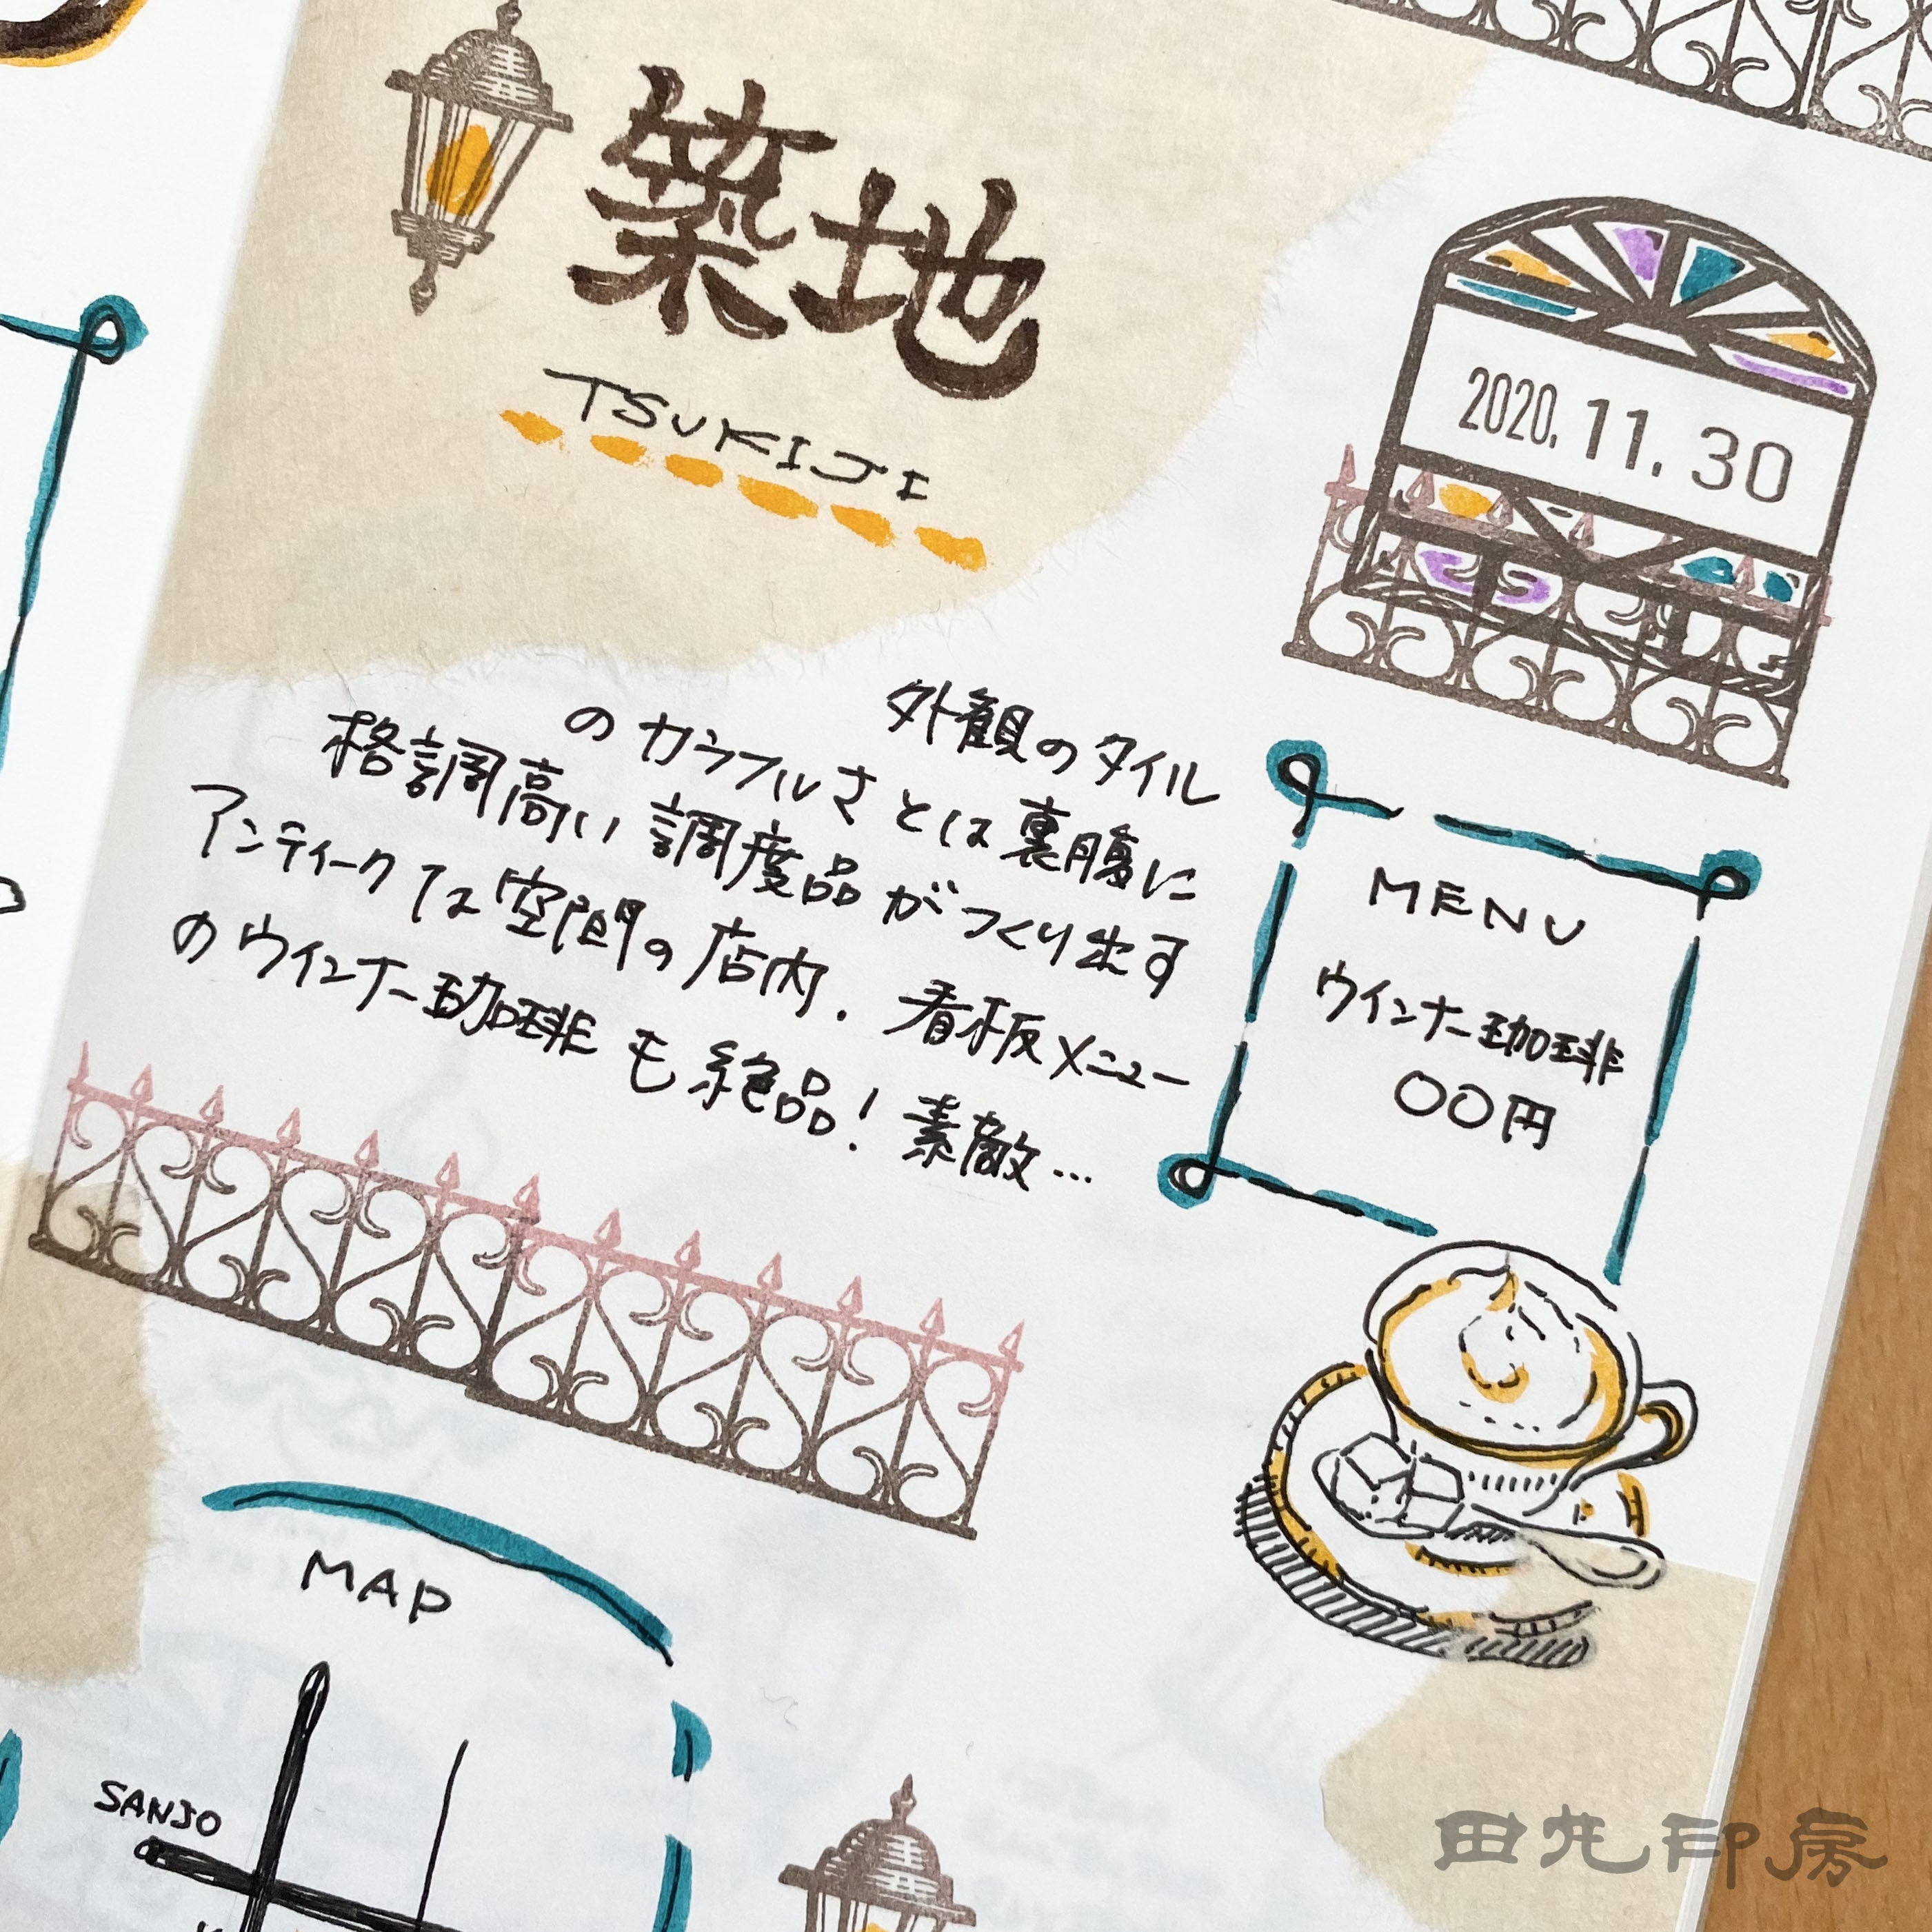 築地
TSUKIJI
2020.11.30
外観のタイル
のカラフルさとは裏腹に
格調高い調度品がつくり出す
アンティークな空間の店内. 看板メニュー
のウインナー珈琲も絶品！素敵…
MENU
ウインナー珈琲
〇〇円
MAP
SANJO
田丸印房